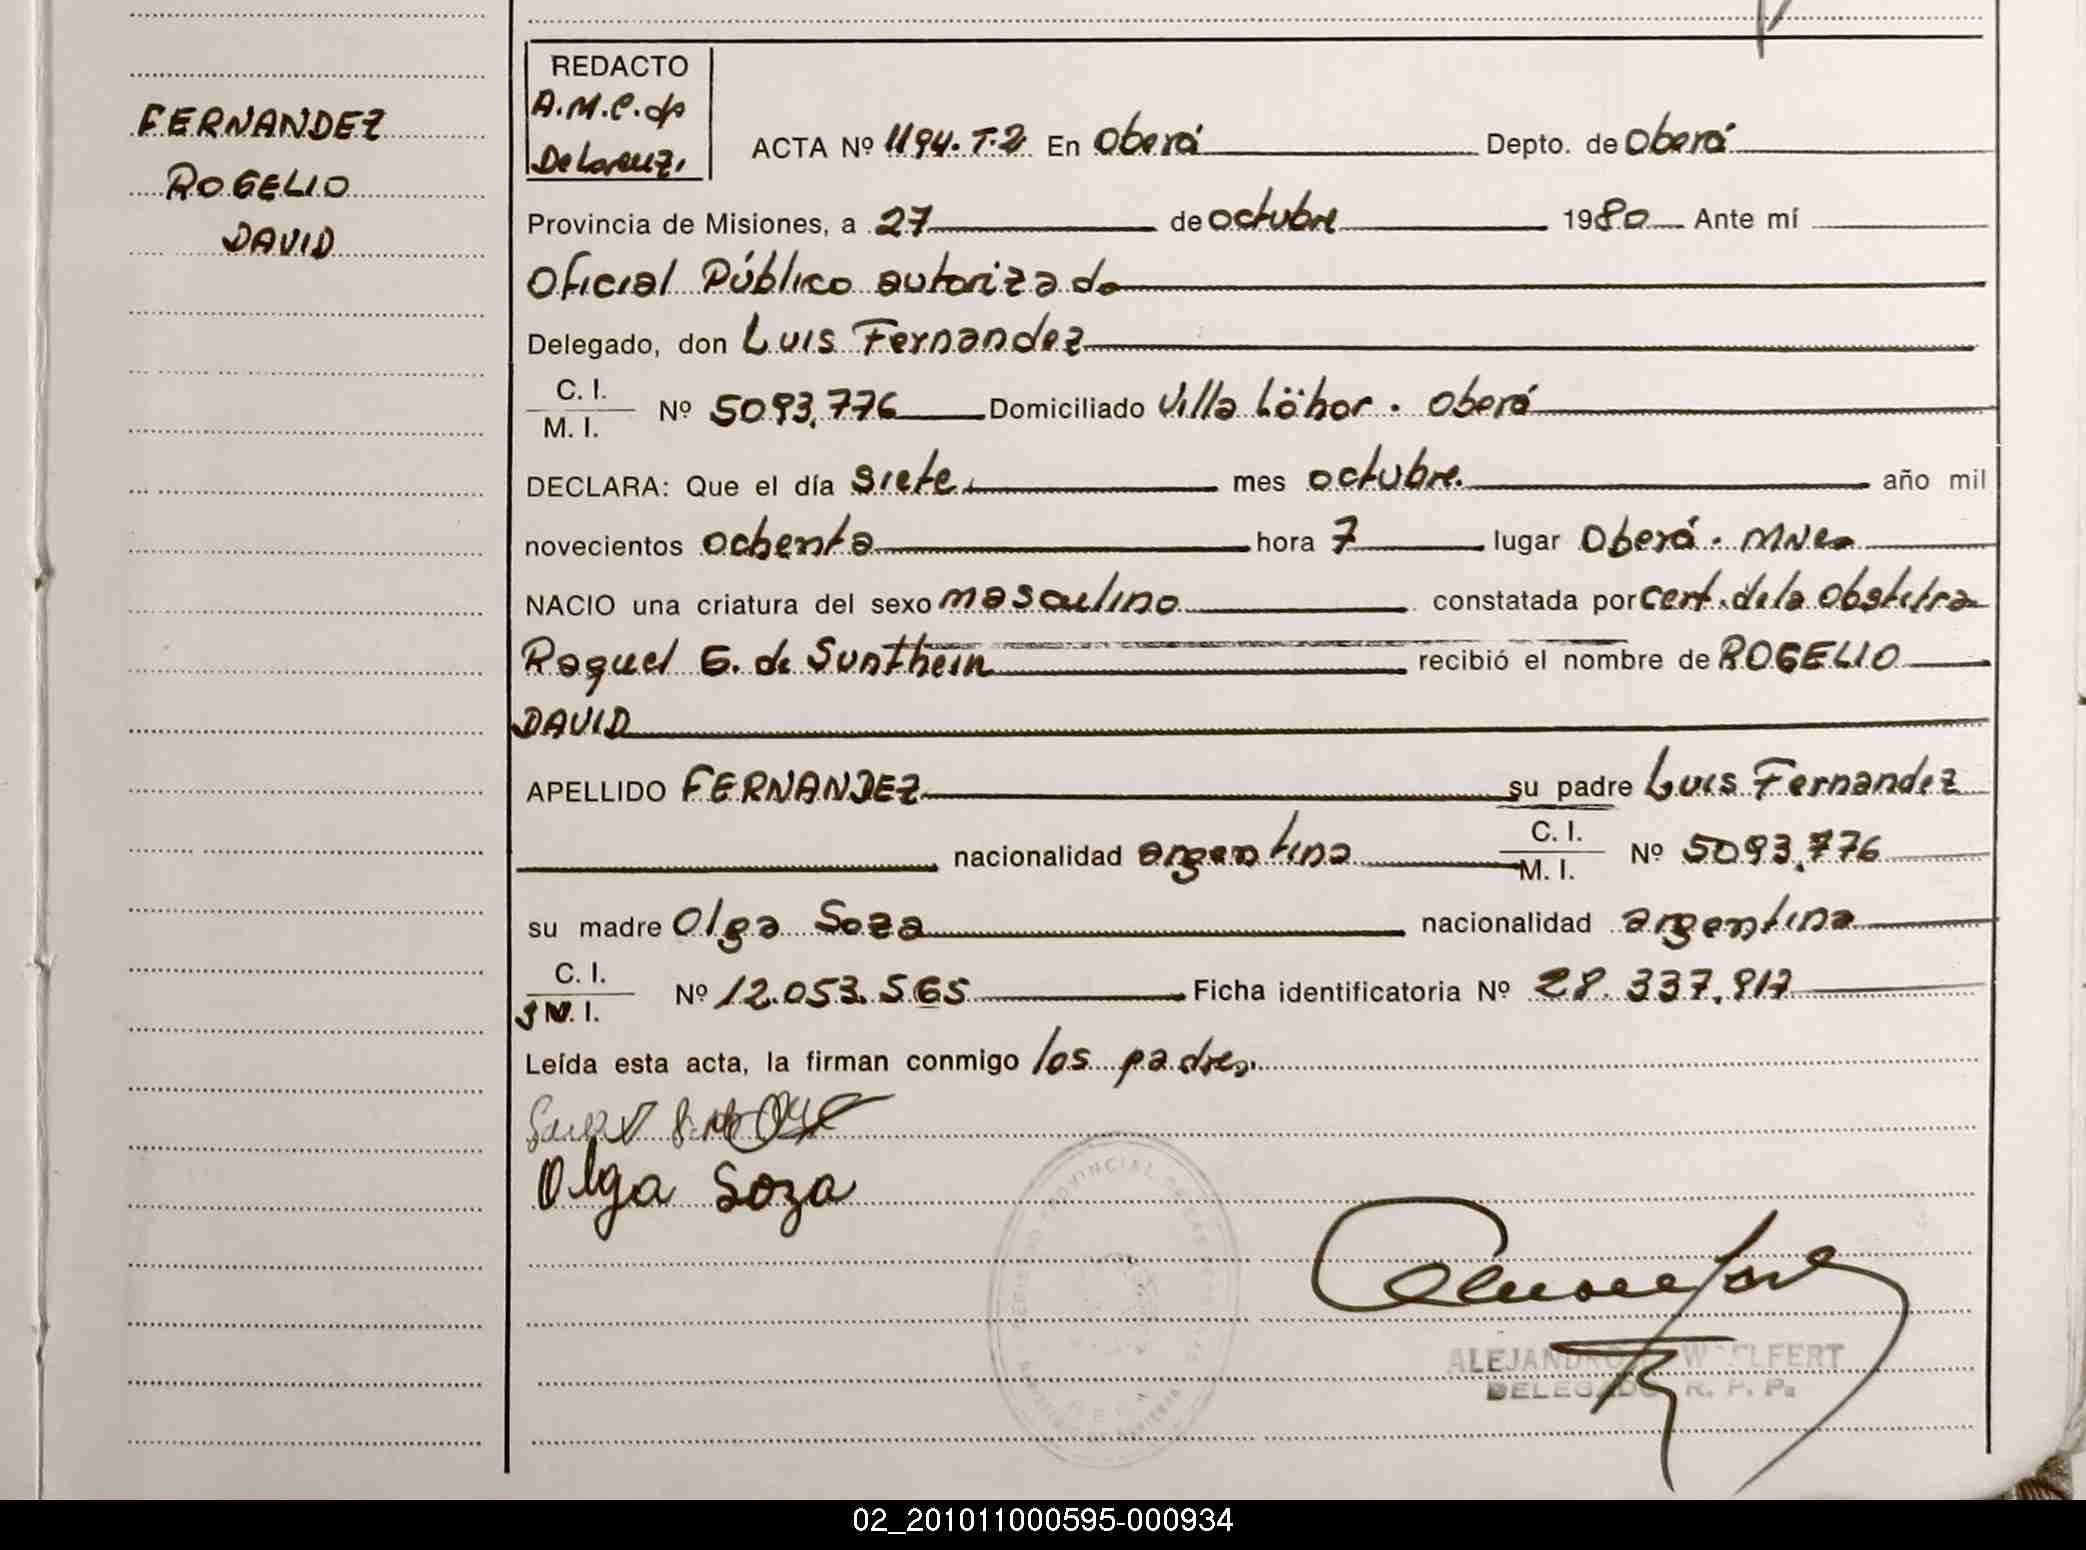 FERNANDEZ
ROGELIO
DAVID
REDACTO
A.M.C. de
De Lorenz.
ACTA Nº 1194. T.2 En Oberá Depto. de Oberá
Provincia de Misiones, a 27 de octubre 1980 Ante mí
Oficial Público autorizado
Delegado, don Luis Fernandez
C. I.
M. I.
Nº 5093.776 Domiciliado Villa Löhor. Oberá
DECLARA: Que el día siete. mes octubre. año mil
novecientos ochenta hora 7 lugar Oberá. Mnes
NACIO una criatura del sexo masculino constatada por cert. de la obstetra
Raquel G. de Sunthein recibió el nombre de ROGELIO
DAVID
APELLIDO FERNANDEZ su padre Luis Fernandez
nacionalidad argentina C. I. M. I. Nº 5093.776
su madre Olga Soza nacionalidad argentina
C. I.
M. I.
Nº 12.053.565 Ficha identificatoria Nº 28.337.917
Leída esta acta, la firman conmigo los padres.
Olga Soza
ALEJANDRO
DELEGADO R. P. P.
02_201011000595-000934